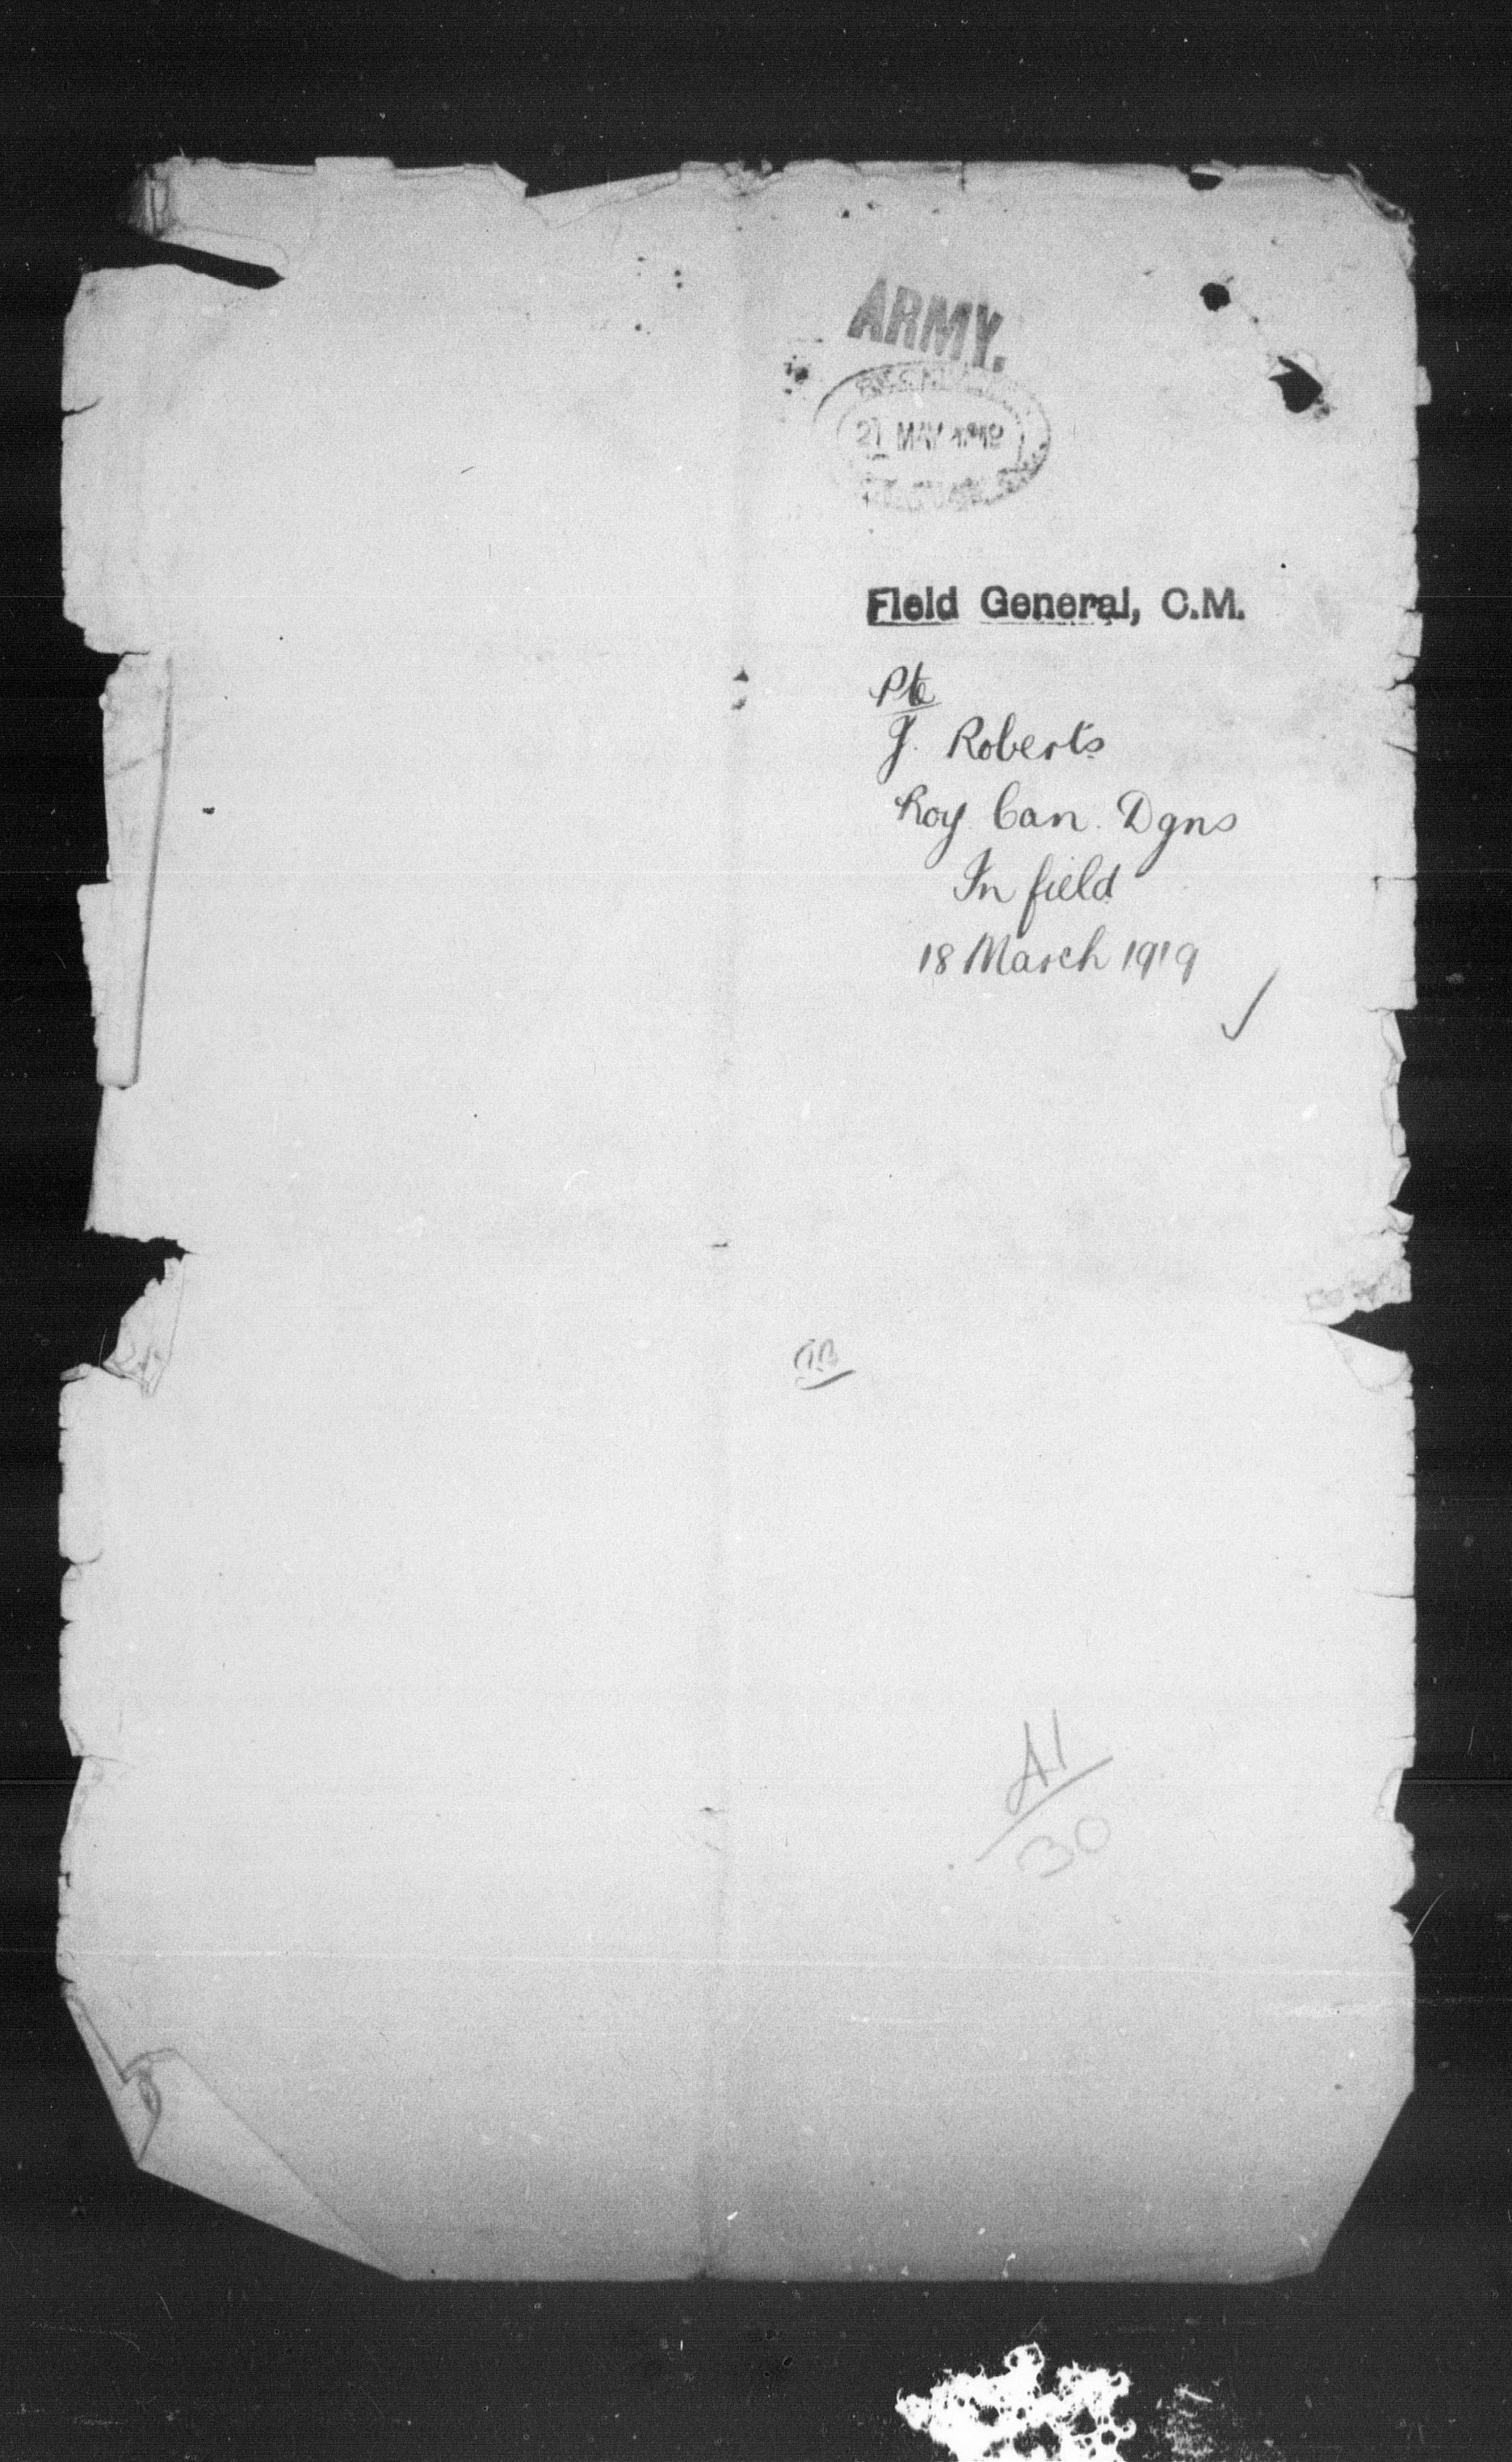 ARMY.
21 MAY 1919
Field General, C.M.
Pte
J. Roberts
Roy. Can. Dgns
In field
18 March 1919
A1
30